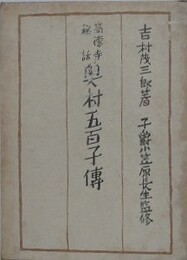 吉村茂三郎著 子爵小笠原長生監修
高徳寺秘話
奥村五百子傳